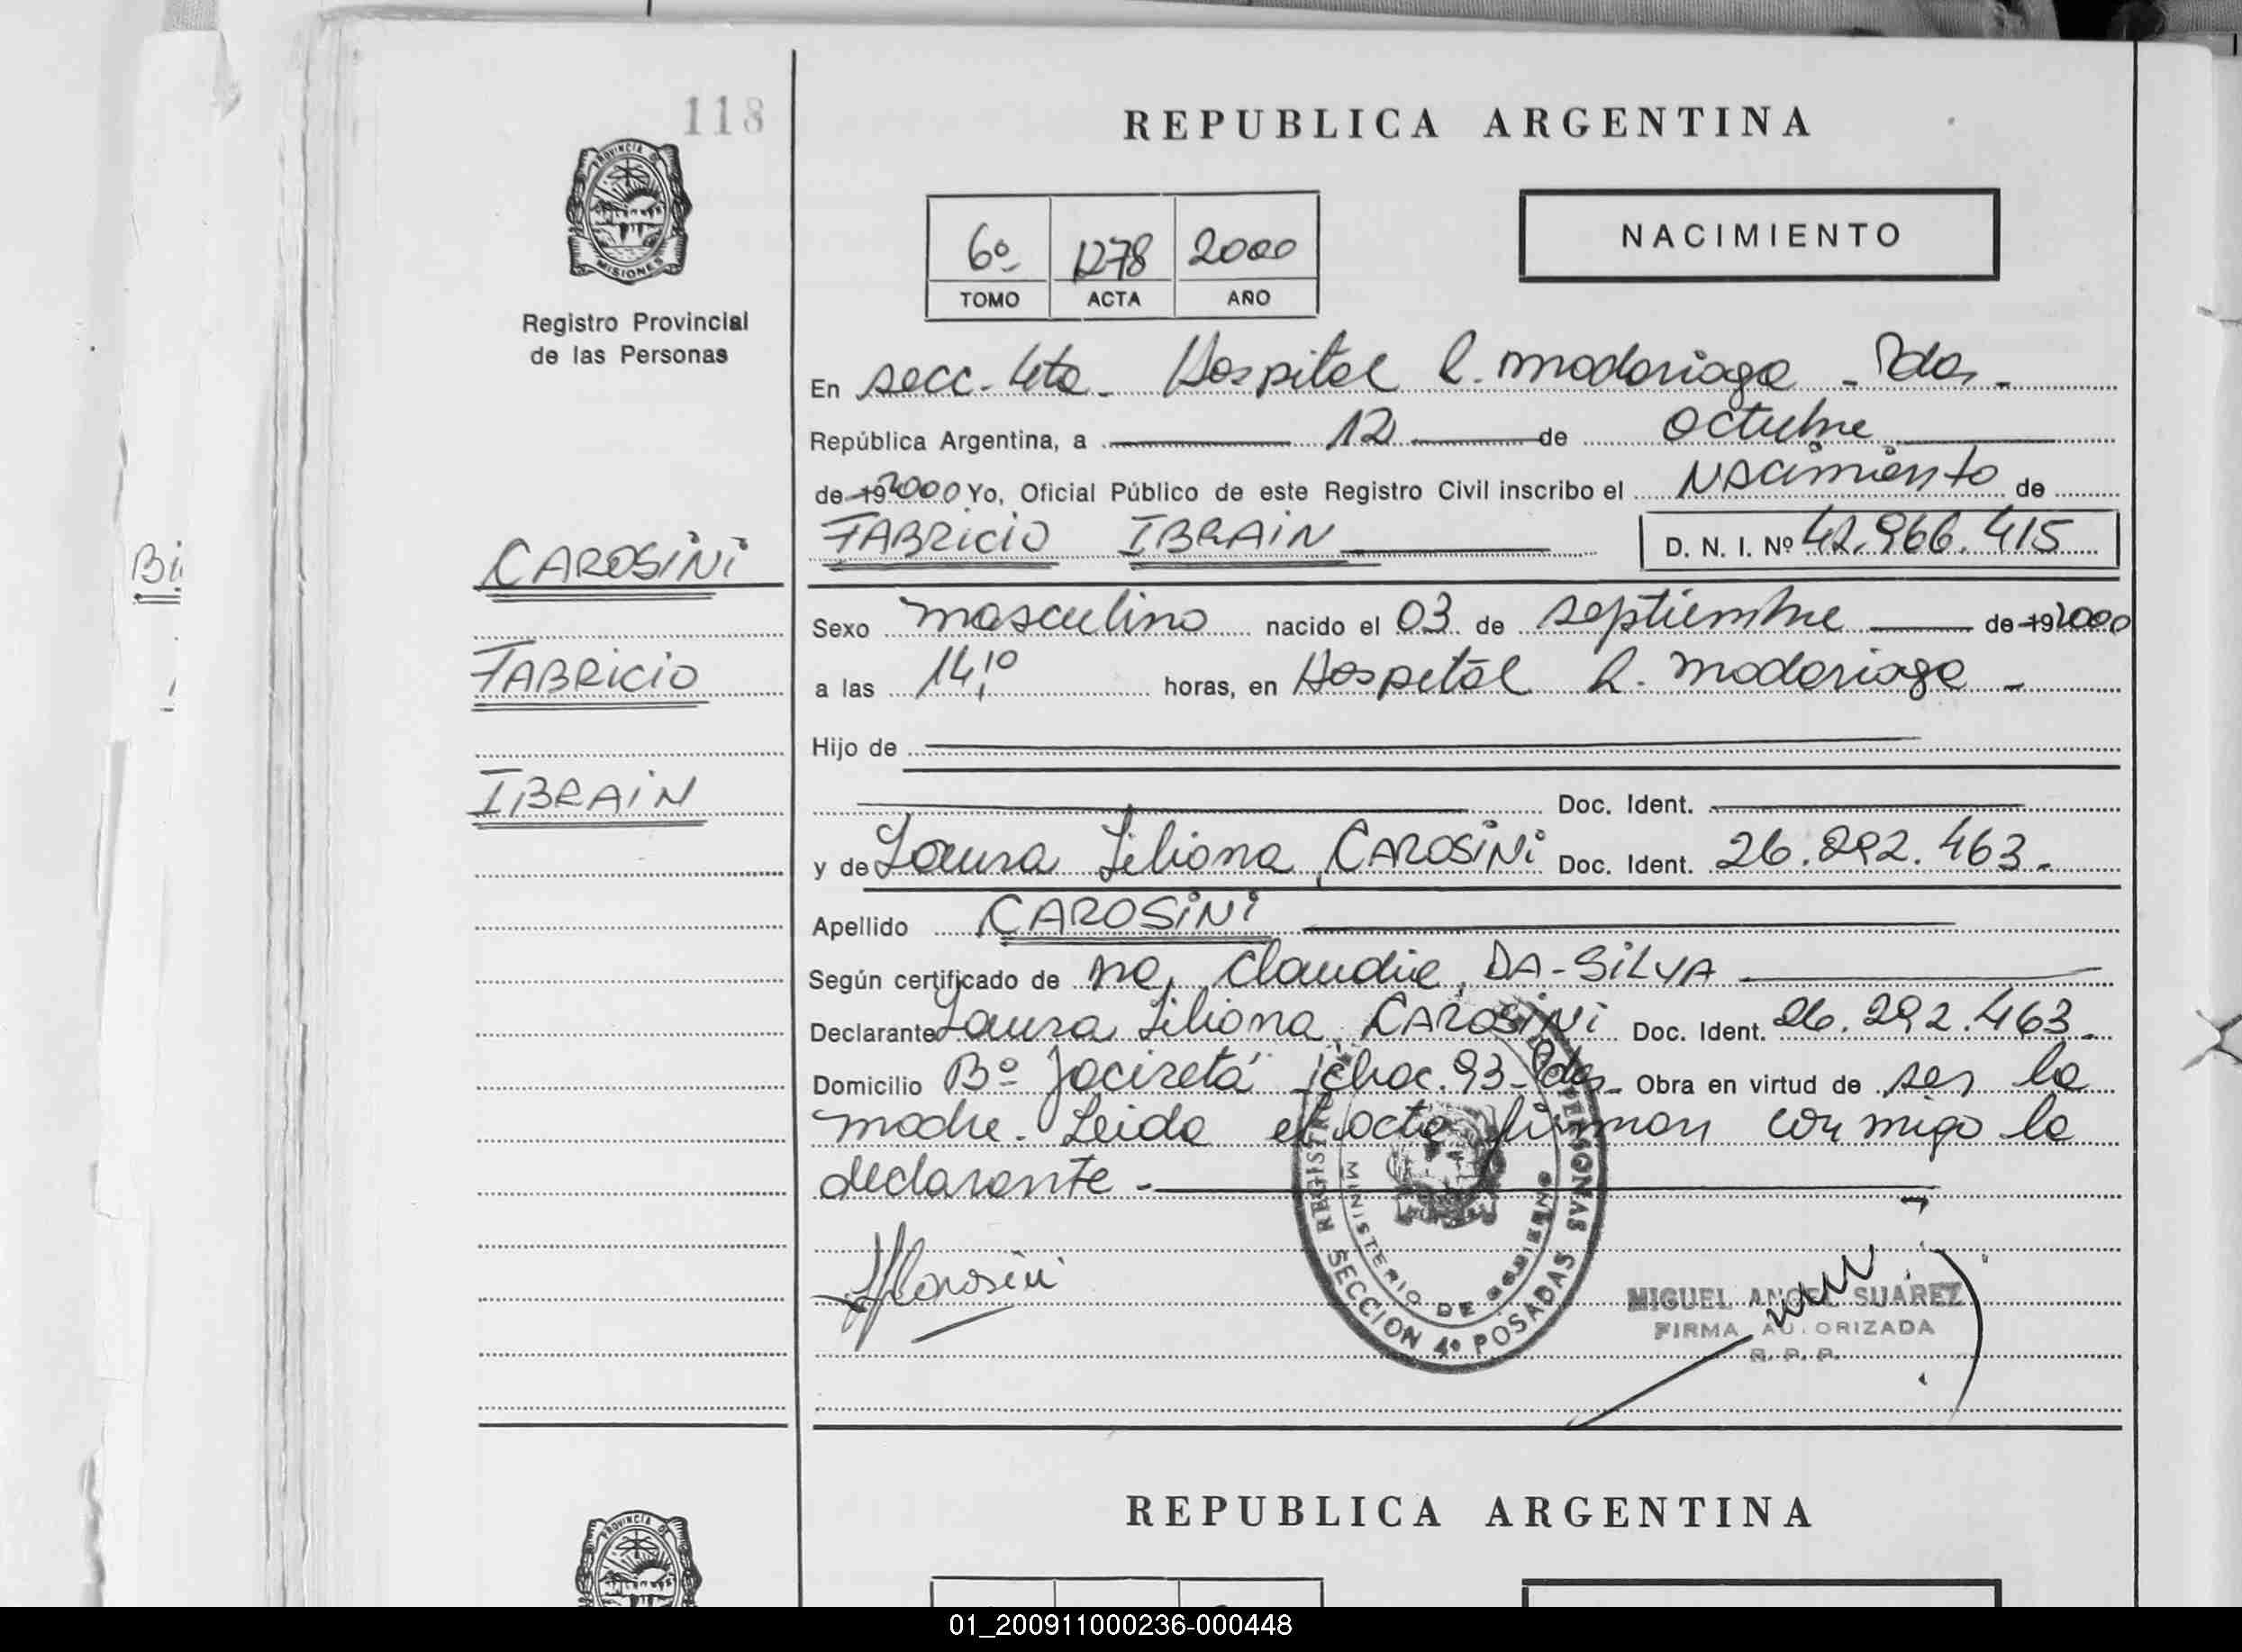 118
REPUBLICA ARGENTINA
PROVINCIA DE
MISIONES
Registro Provincial
de las Personas
6º 1278 2000
TOMO ACTA AÑO
NACIMIENTO
En secc. 4ta - Hospital R. Madariaga - Pdas -
República Argentina, a 12 de octubre
de 19 2000 Yo, Oficial Público de este Registro Civil inscribo el Nacimiento de
FABRICIO IBRAIN D. N. I. Nº 42.966.415
CAROSINI
Bi
Sexo masculino nacido el 03 de septiembre de 19 2000
FABRICIO
a las 14,10 horas, en Hospital R. Madariaga -
Hijo de
IBRAIN
Doc. Ident.
y de Laura Liliana, CAROSINI Doc. Ident. 26.292.463.-
Apellido CAROSINI
Según certificado de Claudia, DA-SILVA
Declarante Laura Liliana, CAROSINI Doc. Ident. 26.292.463.-
Domicilio Bº Jacireta 93 - Pdas - Obra en virtud de ser la
madre. Leida el acta firman conmigo la
declarante -
REGISTRO PERSONAS
MINISTERIO DE GOBIERNO
SECCION 4º POSADAS
Carosini
MIGUEL ANGEL SUAREZ
FIRMA AUTORIZADA
R. P. P.
REPUBLICA ARGENTINA
PROVINCIA DE
01_200911000236-000448